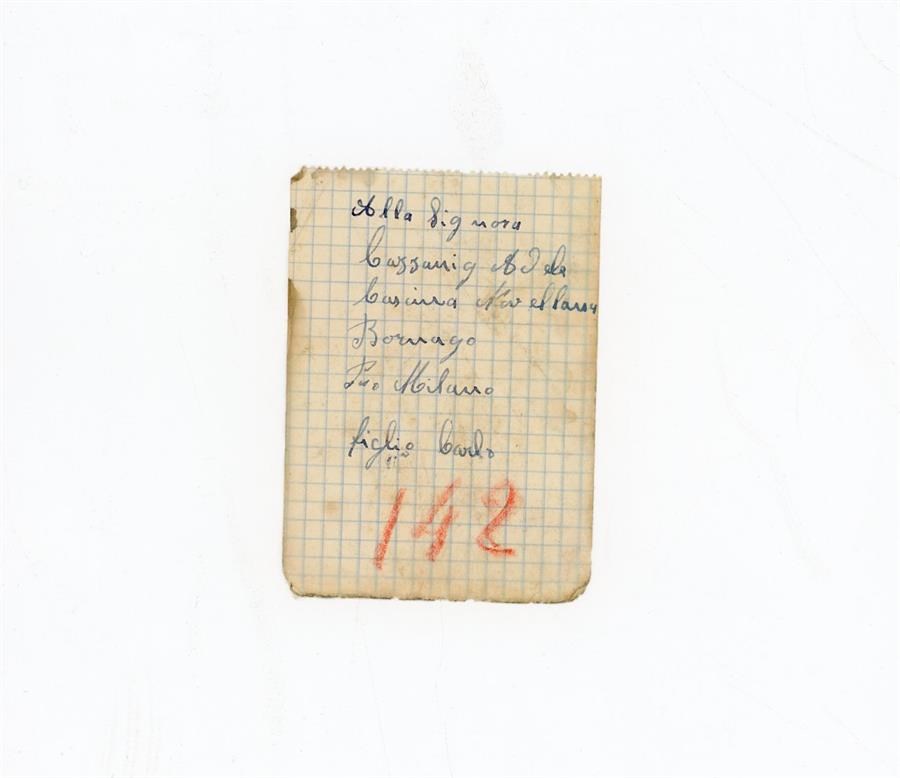 Alla Signora
Cazzanig Adele
Cascina
Bornago
Milano
figlio Carlo
142